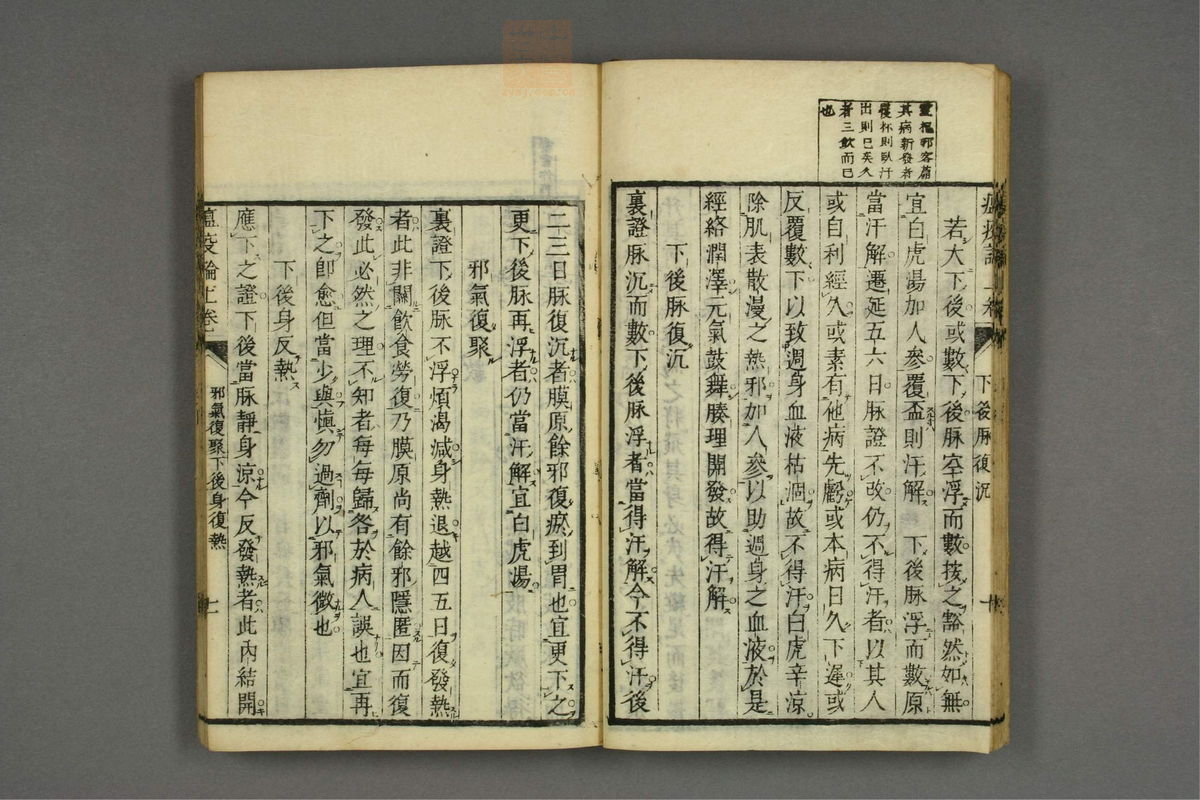 靈樞邪客篇
其病新發者
覆杯則臥汗
出則已矣久
者三飲而已
也
瘟疫論上卷
下後脉復沉
若大下後或數下後脉空浮而數按之豁然如無
宜白虎湯加人參覆盃則汗解下後脉浮而數原
當汗解遷延五六日脉證不改仍不得汗者以其人
或自利經久或素有他病先虧或本病日久下遲或
反覆數下以致週身血液枯涸故不得汗白虎辛涼
除肌表散漫之熱邪加人參以助週身之血液於是
經絡潤澤元氣鼓舞腠理開發故得汗解
下後脉復沉
裏證脉沉而數下後脉浮者當得汗解今不得汗後
二三日脉復沉者膜原餘邪復瘀到胃也宜更下之
更下後脉再浮者仍當汗解宜白虎湯
邪氣復聚
裏證下後脉不浮煩渴減身熱退越四五日復發熱
者此非關飲食勞復乃膜原尚有餘邪隱匿因而復
發此必然之理不知者每每歸咎於病人誤也宜再
下之即愈但當少與慎勿過劑以邪氣微也
下後身反熱
應下之證下後當脉靜身涼今反發熱者此內結開
瘟疫論上卷
邪氣復聚下後身復熱